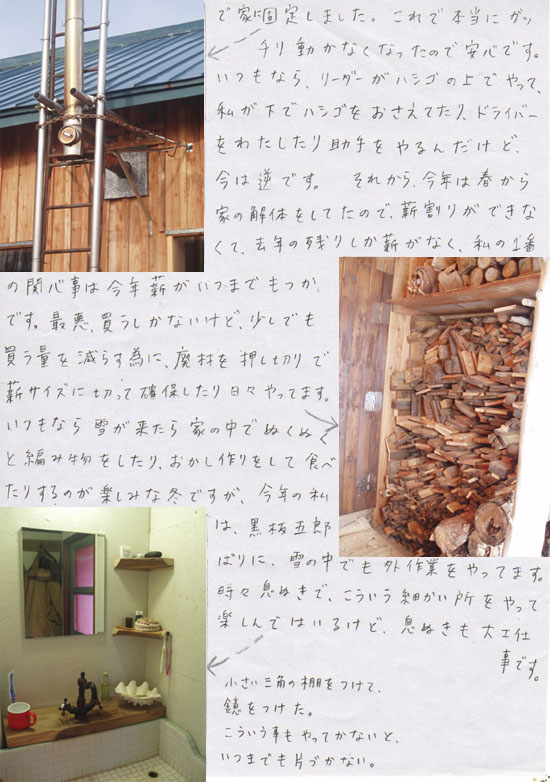 で家に固定しました。これで本当にガッ
チリ動かなくなったので安心です。
いつもなら、リーダーがハシゴの上でやって、
私が下でハシゴをおさえてたり、ドライバー
をわたしたり助手をやるんだけど、
今は逆です。 それから、今年は春から
家の解体をしてたので、薪割りができな
くて、去年の残りしか薪がなく、私の1番
の関心事は今年薪がいつまでもつか
です。最悪、買うしかないけど、少しでも
買う量を減らす為に、廃材を押し切りで
薪サイズに切って確保したり日々やってます。
いつもなら雪が来たら家の中でぬくぬく
と編み物をしたり、おかし作りをして食べ
たりするのが楽しみな冬ですが、今年の私
は、黒板五郎
ばりに、雪の中でも外作業をやってます。
時々息ぬきで、こういう細かい所をやって
楽しんではいるけど、息ぬきも大工仕
事です。
小さい三角の棚をつけて、
鏡をつけた。
こういう事もやってかないと、
いつまでも片づかない。